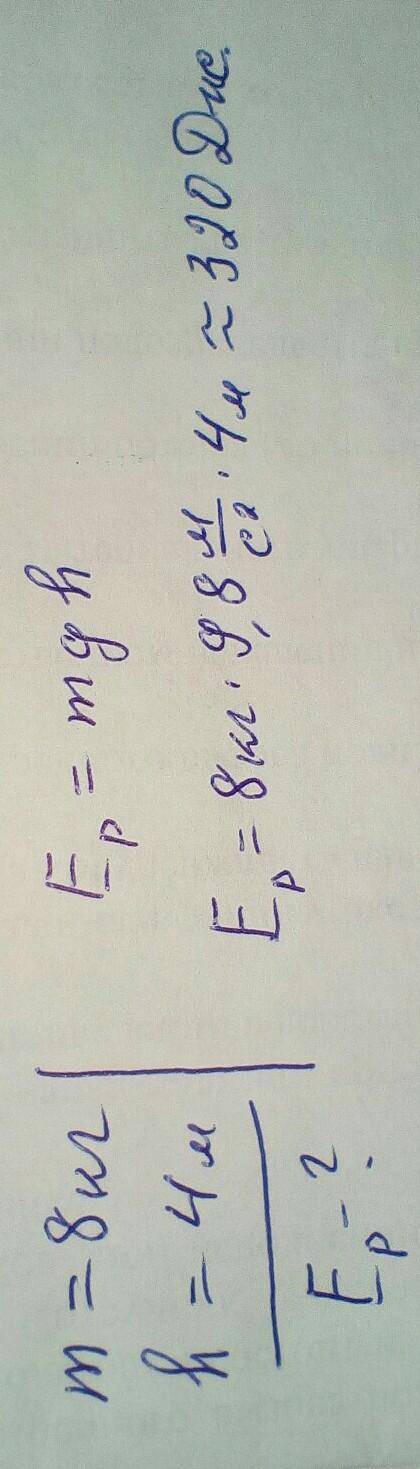 m = 8 кг
h = 4 м
Eₚ - ?
Eₚ = mgh
Eₚ = 8 кг · 9,8 м/с² · 4 м ≈ 320 Дж.